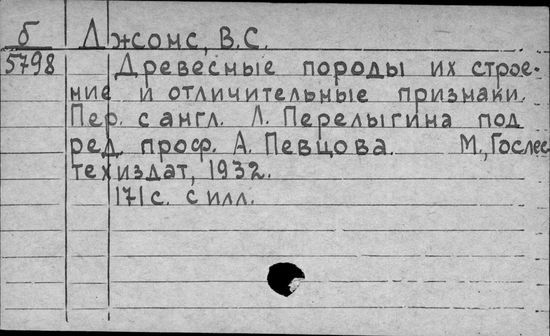 б Джонс, В.С.
5798 Древесные породы их строе-
ние и отличительные признаки.
Пер. с англ. Л. Перелыгина под
ред. проф. А. Певцова. М., Гослес
техиздат, 1932.
171 с. с илл.